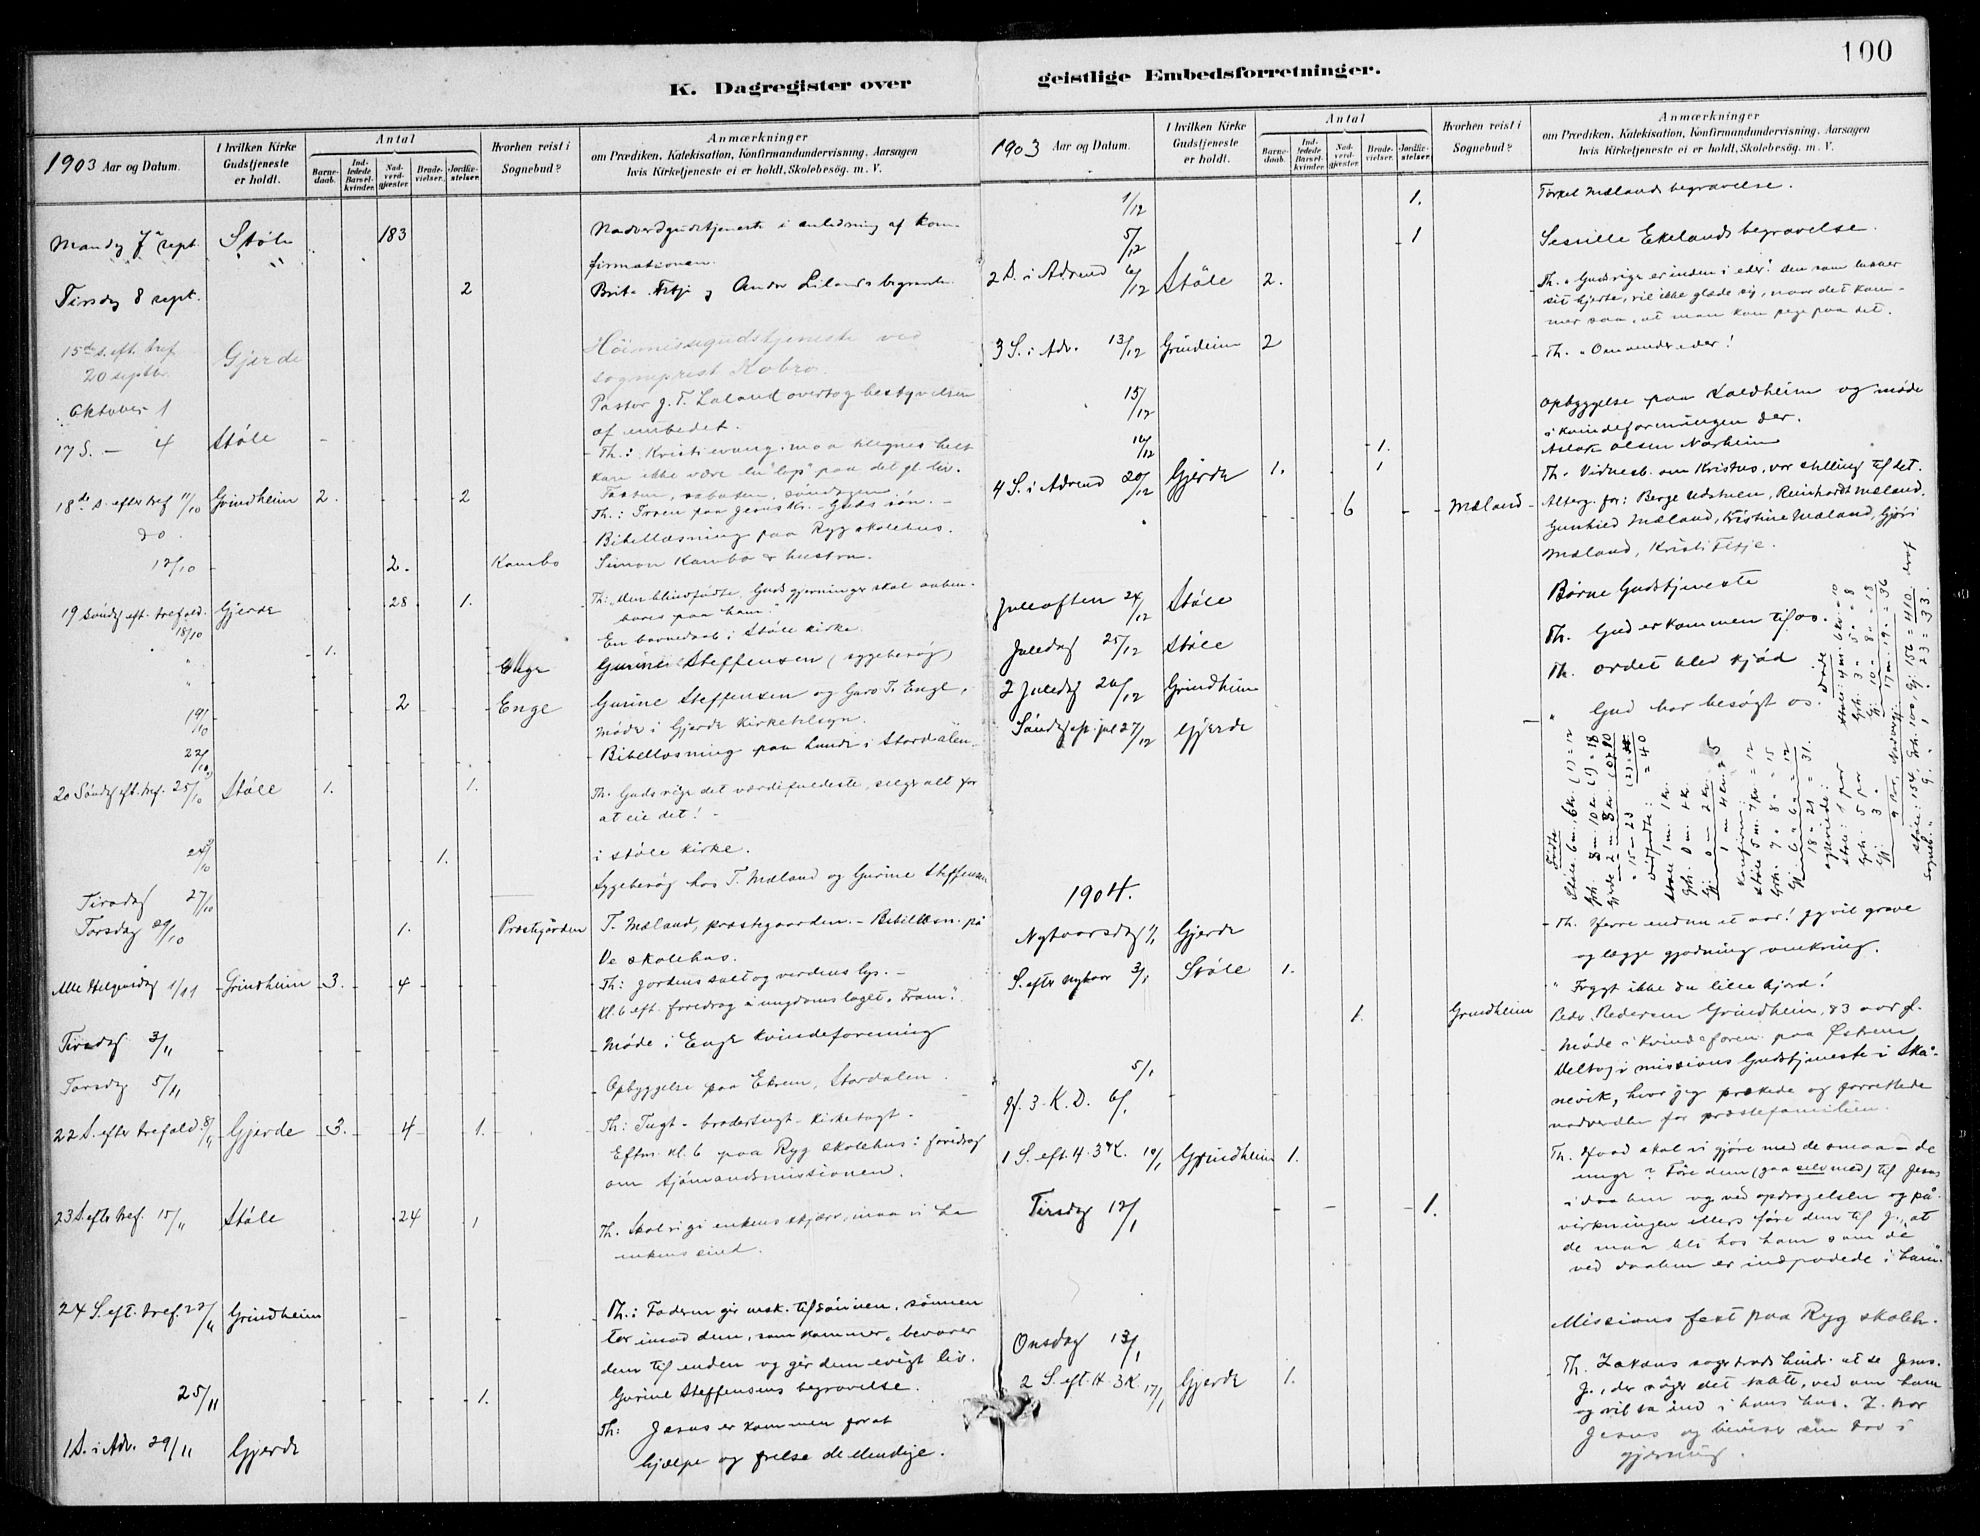 100
K. Dagregister over
geistlige Embedsforretninger.
1903 Aar og Datum.
I hvilken Kirke Gudstjeneste er holdt.
Antal
Barnedaab.
Indledede Barselkvinder.
Nadverdgjester.
Brudevielser.
Jordfæstelser.
Hvorhen reist i Sognebud?
Anmærkninger
om Prædiken, Katekisation, Konfirmandundervisning, Aarsagen
hvis Kirketjeneste ei er holdt, Skolebesøg. m. V.
Mandag 7de sept. Støle 183 Nadverdgudstjeneste i anledning af kon-
firmationen.
Tirsdag 8 sept. 2 Brita Fitje og Anders Lilands begravelse
15de s. eft. tref. Høimissegudstjeneste ved
20 septbr. Gjerde sogneprest Kobro.
Oktober 1 Pastor J. T. Laland overtog bestyrelsen
af embedet.
17 S. – 4 Støle Th.: Kristi evang. maa tilegnes helt
kan ikke være en "lap" paa det gl. liv.
Fasten, sabaten, søndagen.
18de s. efter tref 11/10 Grindheim 2. 2 Th.: Troen paa Jesus Kr. – Guds søn. –
do. Bibellæsning paa Ryg skolehus.
12/10 2. Kambo Simon Kambo & hustru.
19 Søndag eft. trefold. Gjerde 28 1. Th: Den blindfødte, Guds gjerninger skal aaben-
18/10 bares paa ham."
" 1. En barnedaab i Støle kirke.
" Enge Gurine Steffensen (sygebesøg)
19/10 2 Enge Gurine Steffensen og Guro T. Enge,
Møde i Gjerde kirketilsyn.
22/10 Bibellæsning paa Lunde i Stordalen.
20 Søndag eft. tref. 25/10 Støle 1. 1. Th. Guds rige det værdifuldeste, sælge alt for
at eie det! –
1. i Støle kirke.
Tirsdag 27/10 Sygebesøg hos T. Mæland og Gurine Steffensen
Torsdag 29/10 1. Prestegården T. Mæland, præstegaarden. – Bibellæsn. på
Ve skolehus.
Alle Helgensdag 1/11 Grindheim 3. 4 Th: Jordens salt og verdens lys. –
Kl. 6 eft. foredrag i ungdomslaget "Fram".
Tirsdag 3/11 Møde i Enge kvindeforening
Torsdag 5/11 Opbyggelse paa Ekrem, Stordalen.
22 S. efter trefold. 8/11 Gjerde 3. 4 1. Th: Tugt – brodertugt – kirketugt.
Eftm. kl. 6 paa Ryg skolehus: foredrag
om sjømandsmissionen.
23 S. efter tref. 15/11 Støle 24 1 Th. Skal vi gi enkens skjærv, maa vi ha
enkens sind.
24 S. eft. tref. 22/11 Grindheim Th.: Faderen gir msk. til sønnen, sønnen
tar imod dem, som kommer, bevarer
dem til enden og gir dem evigt liv.
25/11 1. Gurine Steffensens begravelse.
1 S. i Adv. 29/11 Gjerde Th: Jesus er kommen forat
hjælpe og frelse de elendige.
1903 Aar og Datum.
I hvilken Kirke Gudstjeneste er holdt.
Antal
Barnedaab.
Indledede Barselkvinder.
Nadverdgjester.
Brudevielser.
Jordfæstelser.
Hvorhen reist i Sognebud?
Anmærkninger
om Prædiken, Katekisation, Konfirmandundervisning, Aarsagen
hvis Kirketjeneste ei er holdt, Skolebesøg. m. V.
1/12 1. Torkel Mælands begravelse.
5/12 1 Sessille Ekelands begravelse.
2 S. i Advend 6/12 Støle 2. Th. "Guds rige er inden i eder". den som lukker
sit hjerte, vil ikke glæde sig, naar det kom-
mer saa, at man kan pege paa det.
3 S. i Adv. 13/12 Grindeim 2 Th. "Omvender eder!
15/12 Opbyggelse paa Saldheim og møde
i kvindeforeningen der.
16/12 1. Aslak Olsen Narheim
4 S. i Advend 20/12 Gjerde 1. 1 Th. Vidnesb. om Kristus, vor stilling til det.
6 Mæland Alterg. for: Berge Udstuen, Reinhardt Mæland,
Gunhild Mæland, Kristine Mæland, Gjøri
Mæland, Kristi Fitje.
Juleaften 24/12 Støle Børne Gudstjeneste
Juledag 25/12 Støle Th. Gud er kommen til os.
2 Juledag 26/12 Grindheim Th. Ordet blev kjød
Søndag ep. jul 27/12 Gjerde " Gud har besøgt os.
Fødte
Støle: 6 m. 6 kv. (1) = 12
Grh. 8 m 10 kv (1) = 18
" 15 – 23 (2)
Dødfødte: = 40
Støle 1 m. 1 kv.
Grh. 0 m. 1 kv.
Gj. 0 m 2 kv.
1 m 4 kv = 5
Konfirm:
Støle 5 m. 7 kv. = 12
Grh. 7 " 8 " = 15
18 " 21 = 31.
Ægteviede:
Støle: 1 par
Grh. 5 par
Gj. 3 "
9 par.
Døde
Støle: 4 m. 6 kv = 10
Grh. 3 " 5 " = 8
Gj. 10 " 8 " = 18
17 m. 19 " = 36
Støle: 154, Grh. 100, Gj. 156 = 410
Sogneb. " 9. " 1 " 23 = 33.
1904.
Nytaarsdag 1/1 Gjerde Th. Herre endnu et aar! jeg vil grave
og lægge gjødning omkring.
S. efter nytaar 3/1 Støle 1. " Frygt ikke du lille hjord!
1. Grindheim Peder Pedersen Grindheim, 83 aar gl.
5/1 Møde i Kvindeforen. paa Østrem
H. 3 K. D. 6/1 Deltog i missions Gudstjeneste i Skå-
nevik, hvor jeg prækede og forrettede
nadverden for præstefamilien.
1 S. eft. H. 3 K. 10/1 Grindheim 1. Th. Hvad skal vi gjøre med de smaa – de
unge? Føre dem (gaa selv med) til Jesus
i daaben og ved opdragelsen og på-
virkningen ellers føre dem til J., at
Tirsdag 12/1 1. de maa bli hos ham som de
ved daaben er indpodede i ham.
Onsdag 13/1 Missions fest paa Ryg skoleh.
2 S. eft. H. 3 K. 17/1 Gjerde 1. Th. Zakæus søger trods hindr. at se Jesus.
J., der søger det tabte, ved om ham
og vil ta ind i hans hus. Z. tror
Jesus og beviser sin tro i
gjerning.